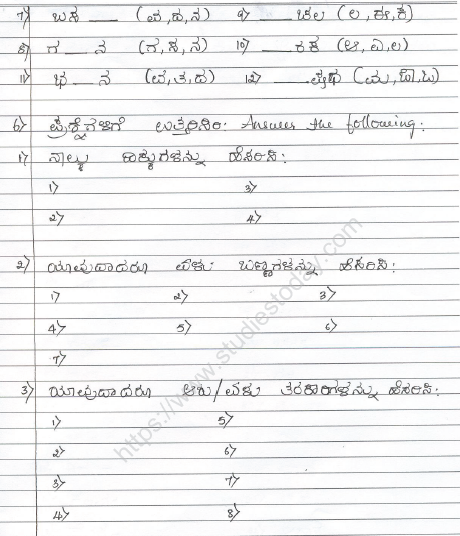 7) ಬಸ ___ (ವ,ಹ,ನ) 9) ___ ಚಲ (ಲ,ಈ,ಕ)
8) ಗ __ ನ (ಗ,ಸ,ನ) 10) ___ ರಕ (ಆ,ಎ,ಲ)
11) ಭ __ ನ (ವ,ತ,ದ) 12) ___ ಷಧ (ಮ,ಔ,ಒ)
6) ಪ್ರಶ್ನೆಗಳಿಗೆ ಉತ್ತರಿಸಿರಿ: Answer the following:
1) ನಾಲ್ಕು ದಿಕ್ಕುಗಳನ್ನು ಹೆಸರಿಸಿ:
1) 3)
2) 4)
2) ಯಾವುದಾದರೂ ಏಳು ಬಣ್ಣಗಳನ್ನು ಹೆಸರಿಸಿ:
1) 2) 3)
4) 5) 6)
7)
3) ಯಾವುದಾದರೂ ಆರು/ಏಳು ತರಕಾರಿಗಳನ್ನು ಹೆಸರಿಸಿ:
1) 5)
2) 6)
3) 7)
4) 8)
https://www.studiestoday.com